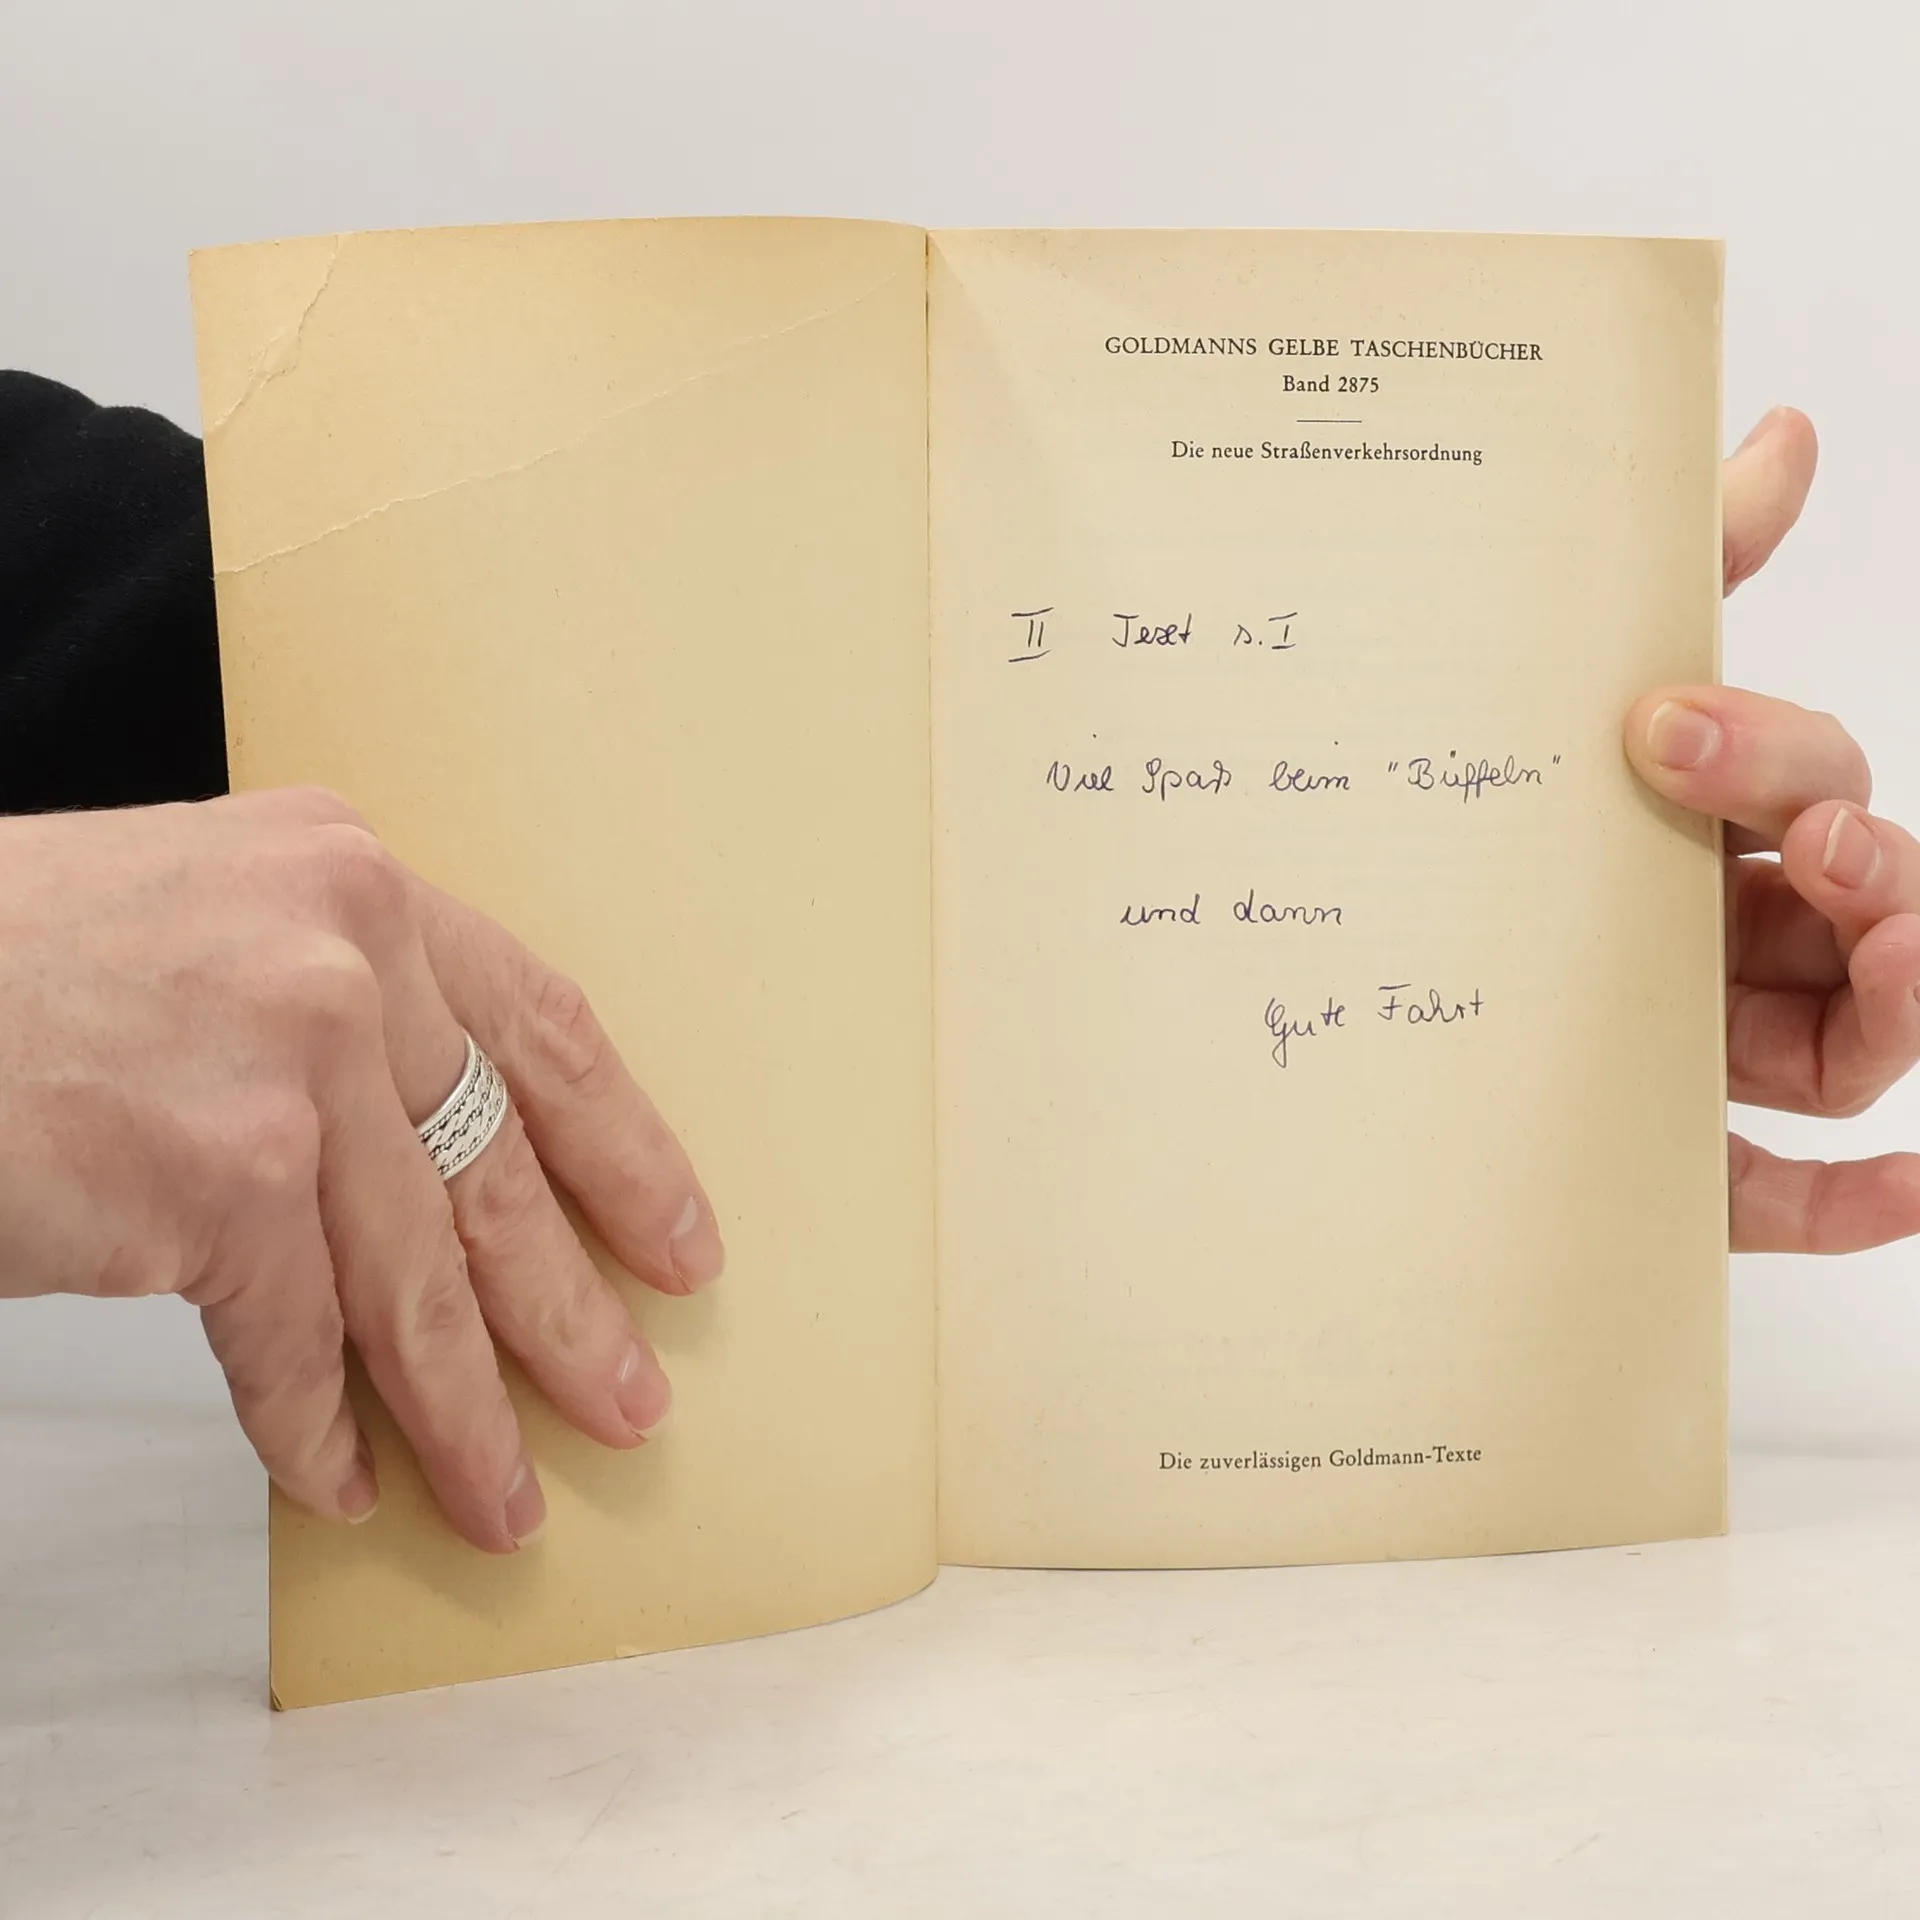 GOLDMANNS GELBE TASCHENBÜCHER
Band 2875
Die neue Straßenverkehrsordnung
II Text s. I
Viel Spaß beim "Büffeln"
und dann
Gute Fahrt
Die zuverlässigen Goldmann-Texte